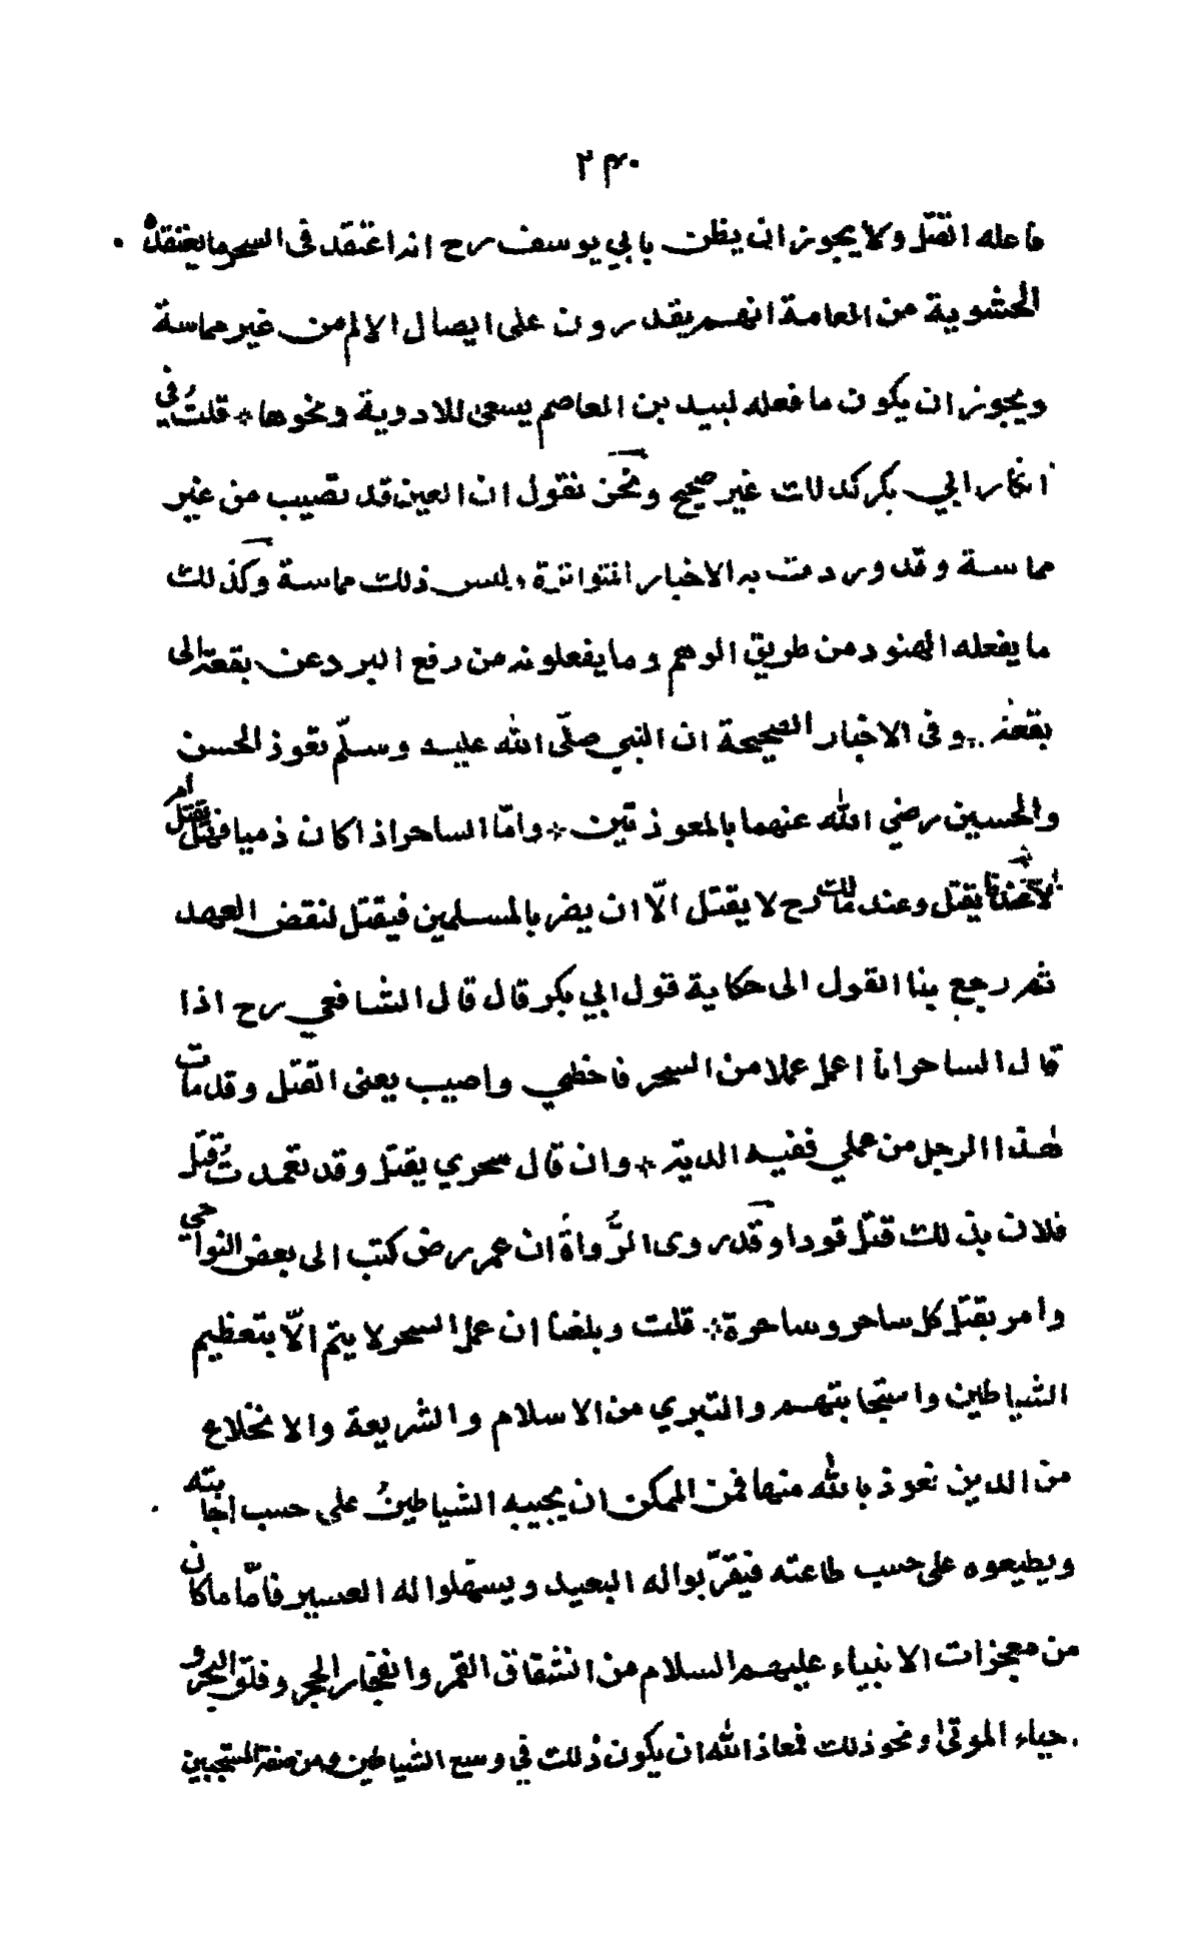 ٢٣٠
فاعله القتل ولا يجوز ان يظن بابي يوسف رح انه اعتقد فى السحر ما يعتقده
الحشوية من العامة انهم يقدرون على ايصال الالم من غير مماسة
ويجوز ان يكون ما فعله لبيد بن العاصم يسعى للادوية ونحوها * قلتُ في
انكار ابي بكر كذلك غير صحيح ونحن نقول ان العين قد تصيب من غير
مماسة وقد وردت به الاخبار المتواترة وليس ذلك مماسة وكذلك
ما يفعله الهنود من طريق الوهم وما يفعلونه من رفع البرد عن بقعة الى
بقعة .. وفى الاخبار الصحيحة ان النبي صلّى الله عليه وسلّم تعوذ للحسن
والحسين رضي الله عنهما بالمعوذتين * وامّا الساحر اذا كان ذميا فهل يقتل ام
لا عندنا يقتل وعند مالك رح لا يقتل الّا ان يضر بالمسلمين فيقتل لنقض العهد
ثم رجع بنا القول الى حكاية قول ابي بكر قال قال الشافعي رح اذا
قال الساحر انا اعمل عملا من السحر فاخطي واصيب يعنى القتل وقد مات
هذا الرجل من عملي ففيه الدية * وان قال سحري يقتل وقد تعمدتُ قتل
فلان بذلك قتل قودا وقد روى الرُّواة ان عمر رض كتب الى بعض النواحي
وامر بقتل كل ساحر وساحرة * قلت وبلغنا ان عمل السحر لا يتم الّا بتعظيم
الشياطين واستجابتهم والتبري من الاسلام والشريعة والانخلاع
من الدين نعوذ بالله منها فمن الممكن ان يجيبه الشياطينُ على حسب اجابته
ويطيعوه على حسب طاعته فيقرّبوا له البعيد ويسهّلوا له العسير فامّا ما كان
من معجزات الانبياء عليهم السلام من انشقاق القمر وانفجار الحجر وفلق البحر و
احياء الموتى ونحو ذلك فمعاذ الله ان يكون ذلك في وسع الشياطين ومن صفة المستجيبين